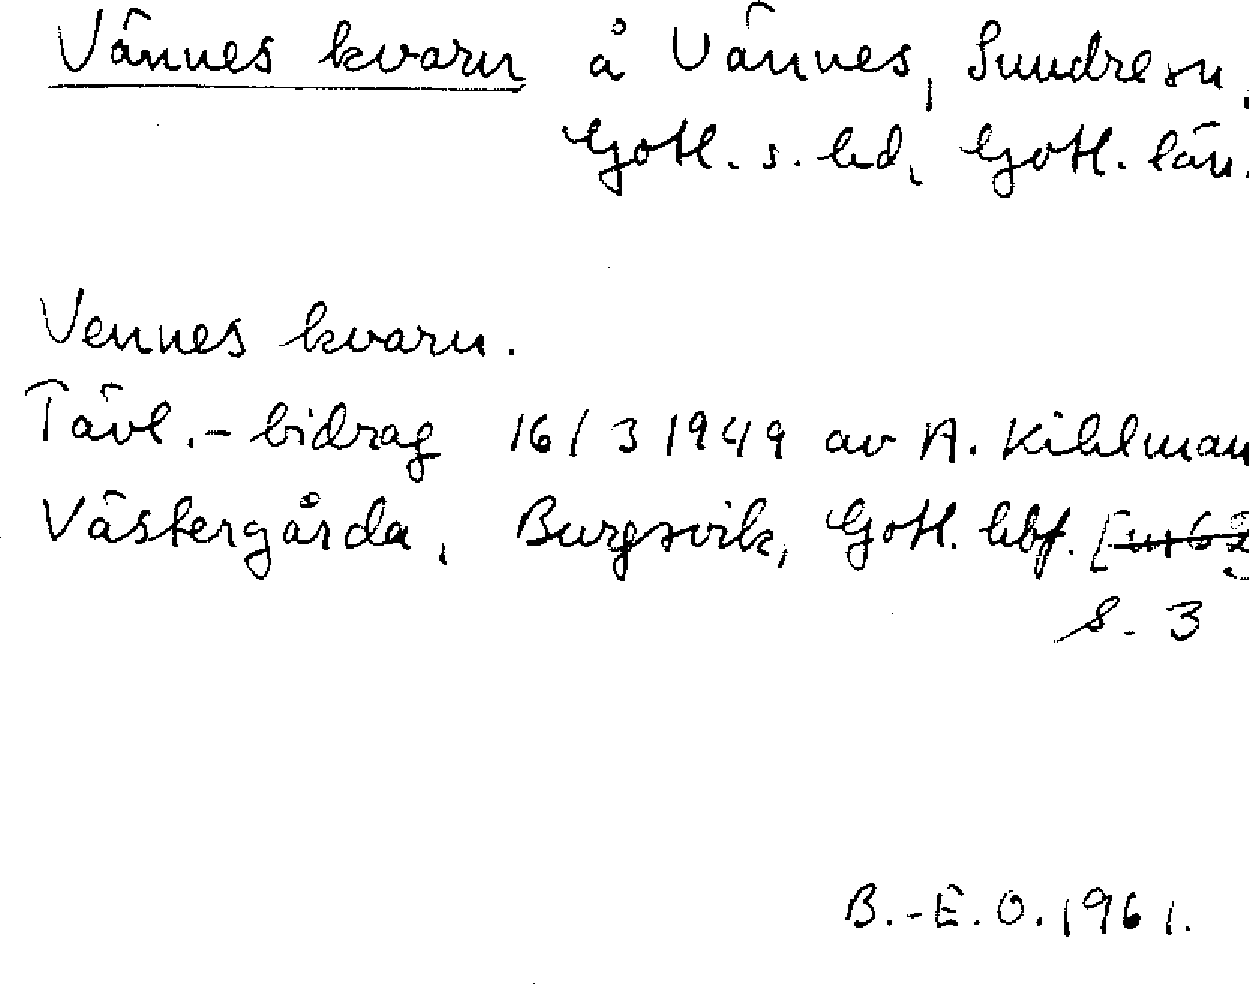 Vännes kvarn å Vännes, Sundre sn,
Gotl. s. hd, Gotl. län.
Vennes kvarn.
Tävl.-bidrag 16/3 1949 av A. Kihlman
Västergårda, Burgsvik, Gotl. hbf. [
S. 3
B.-E. O. 1961.